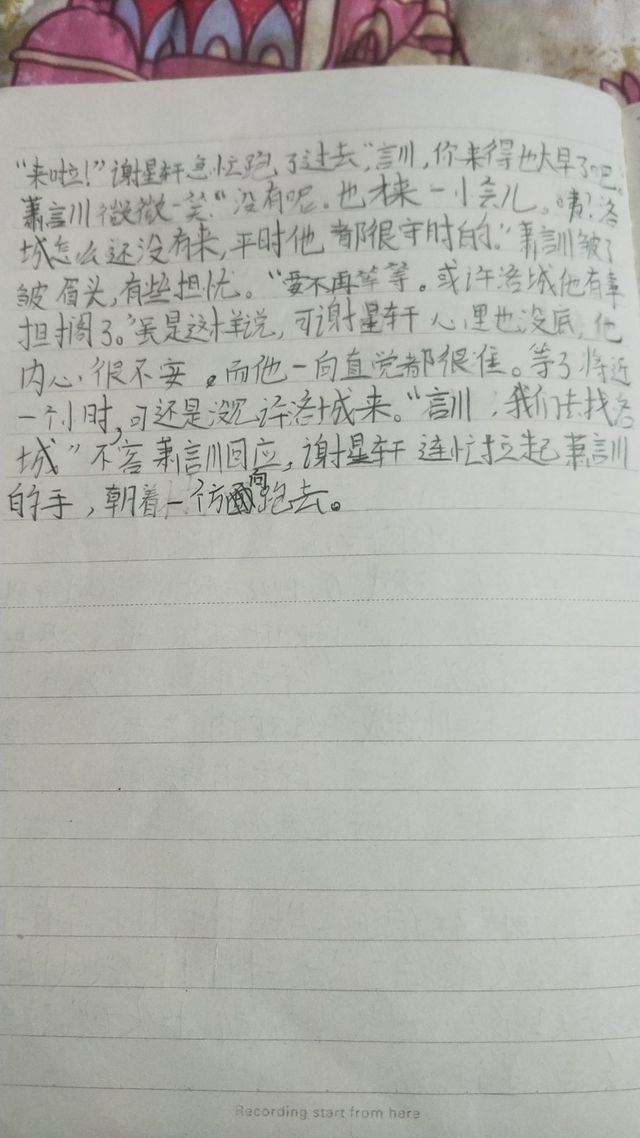 “来啦！”谢星轩急忙跑了过去，“言川，你来得也太早了吧。
萧言川微微一笑“没有呢。也才来一小会儿。咦？洛
城怎么还没有来，平时他都很守时的。”萧言川皱了
皱眉头，有些担忧。“要不再等等。或许洛城他有事
担搁了。”虽是这样说，可谢星轩心里也没底，他
内心很不安。而他一向直觉都很准。等了将近
一个小时，可还是没见许洛城来。“言川，我们去找洛
城”不容萧言川回应，谢星轩连忙拉起萧言川
的手，朝着一个方向跑去。
Recording start from here